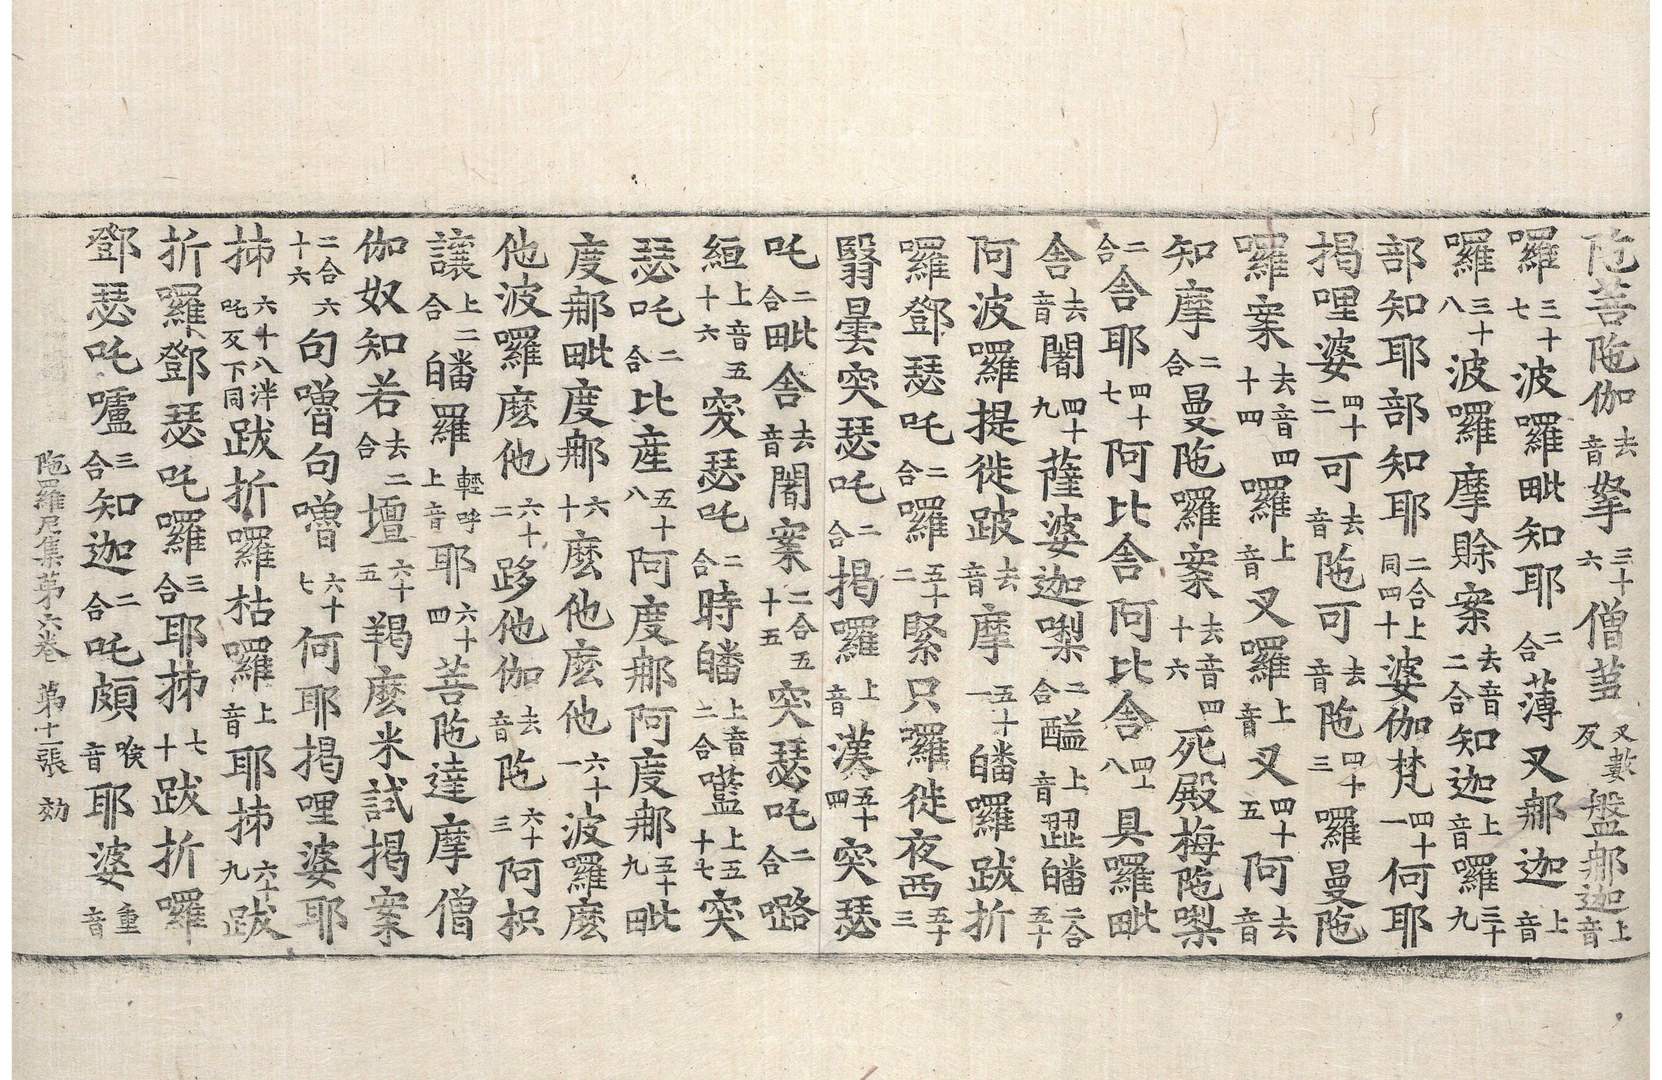 陁菩陁伽去音拏三十六僧𦭘叉數反盤𨚗迦上音
囉三十七波囉毗知耶二合薄叉𨚗迦上音
囉三十八波囉摩賒案去音二合知迦上音囉三十九
部知耶部知耶二合上同四十婆伽梵四十一何耶
揭哩婆四十二可去音陁可去音陁四十三囉曼陁
囉案去音四十四囉上音叉囉上音叉四十五阿去音
知摩二合曼陁囉案去音四十六死殿梅陁㗚
二合舍耶四十七阿比舍阿比舍四十八具囉毗
舍去音闍四十九薩婆迦㗚二合醯上音𨙸皤二合五十
阿波囉提徙跛去音摩五十一皤囉跋折
囉鄧瑟吒二合囉五十二緊只囉徙夜西五十三
翳曇突瑟吒二合揭囉上音漢五十四突瑟
吒二合毗舍去音闍案二合五十五突瑟吒二合𡀔
絙上音五十六突瑟吒二合時皤上音二合嚂上五十七突
瑟吒二合比產五十八阿度𨚗阿度𨚗五十九毗
度𨚗毗度𨚗六十麼他麼他六十一波囉麼
他波囉麼他六十二跢他伽去音陁六十三阿枳
讓上二合皤羅輕呼上音耶六十四菩陁達摩僧
伽奴知若去二合壇六十五羯麼米試揭案
二合六十六句嚕句嚕六十七何耶揭哩婆耶
㧊六十八泮吒反下同跋折囉枯囉上音耶㧊六十九跋
折囉鄧瑟吒囉三合耶㧊七十跋折囉
鄧瑟吒嚧三合知迦二合吒頗㗋音耶婆重音
陁羅尼集第六卷 第十一張 効